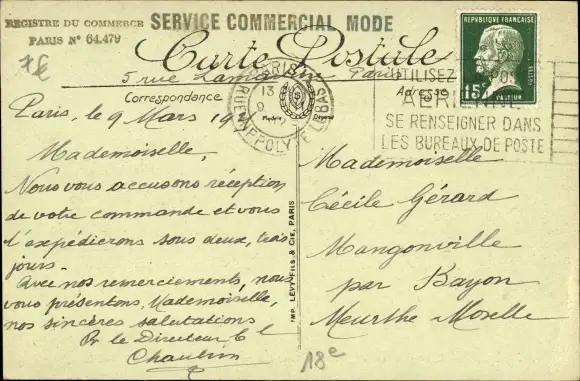 REGISTRE DU COMMERCE
PARIS N° 64.479
SERVICE COMMERCIAL MODE
7€
Carte Postale
5 rue Lamartine Paris
Correspondance
Adresse
RÉPUBLIQUE FRANÇAISE
POSTES
15c
PASTEUR
PARIS
13
9
RUE HIPPOLYTE LEBAS
UTILISEZ
POS
AÉRIENNE
SE RENSEIGNER DANS
LES BUREAUX DE POSTE
Paris, le 9 Mars 19
Mademoiselle,
Nous vous accusons réception
de votre commande et vous
l'expédierons sous deux, trois
jours.
Avec nos remerciements, nous
vous présentons, Mademoiselle,
nos sincères salutations
Pr. le Directeur Cl
IMP. LÉVY FILS & CIE, PARIS
Mademoiselle
Cécile Gérard
Mangonville
par Bayon
Meurthe Moselle
18e